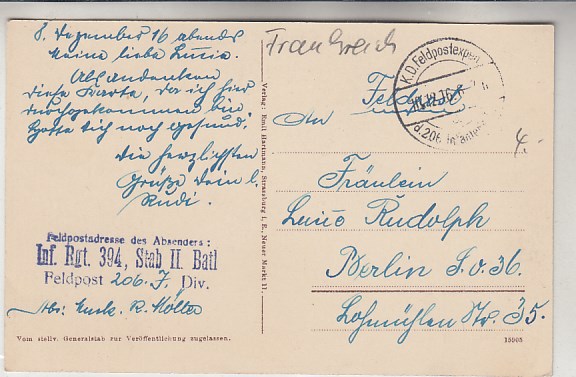 8. Dezember 16 abends
Meine liebe Lucie.
Als Andenken
diese Karte, da ich hier
durchgekommen bin
Gotte sich noch gesund.
Die herzlichsten
Grüße Dein l.
Rudi.
Feldpostadresse des Absenders:
Inf. Rgt. 394, Stab II. Batl
Feldpost 206. J. Div.
Abs: Musk. R. Mölter
Vom stellv. Generalstab zur Veröffentlichung zugelassen.
Verlag: Emil Hartmann, Strassburg i. E., Neuer Markt 17.
Frankreich
K.D. Feldpostexped
10.12.16
d. 206. Infanterie
Feldpost
An
4.-
Fräulein
Lucie Rudolph
Berlin S.O. 36.
Lohmühlen Str. 35.
15005